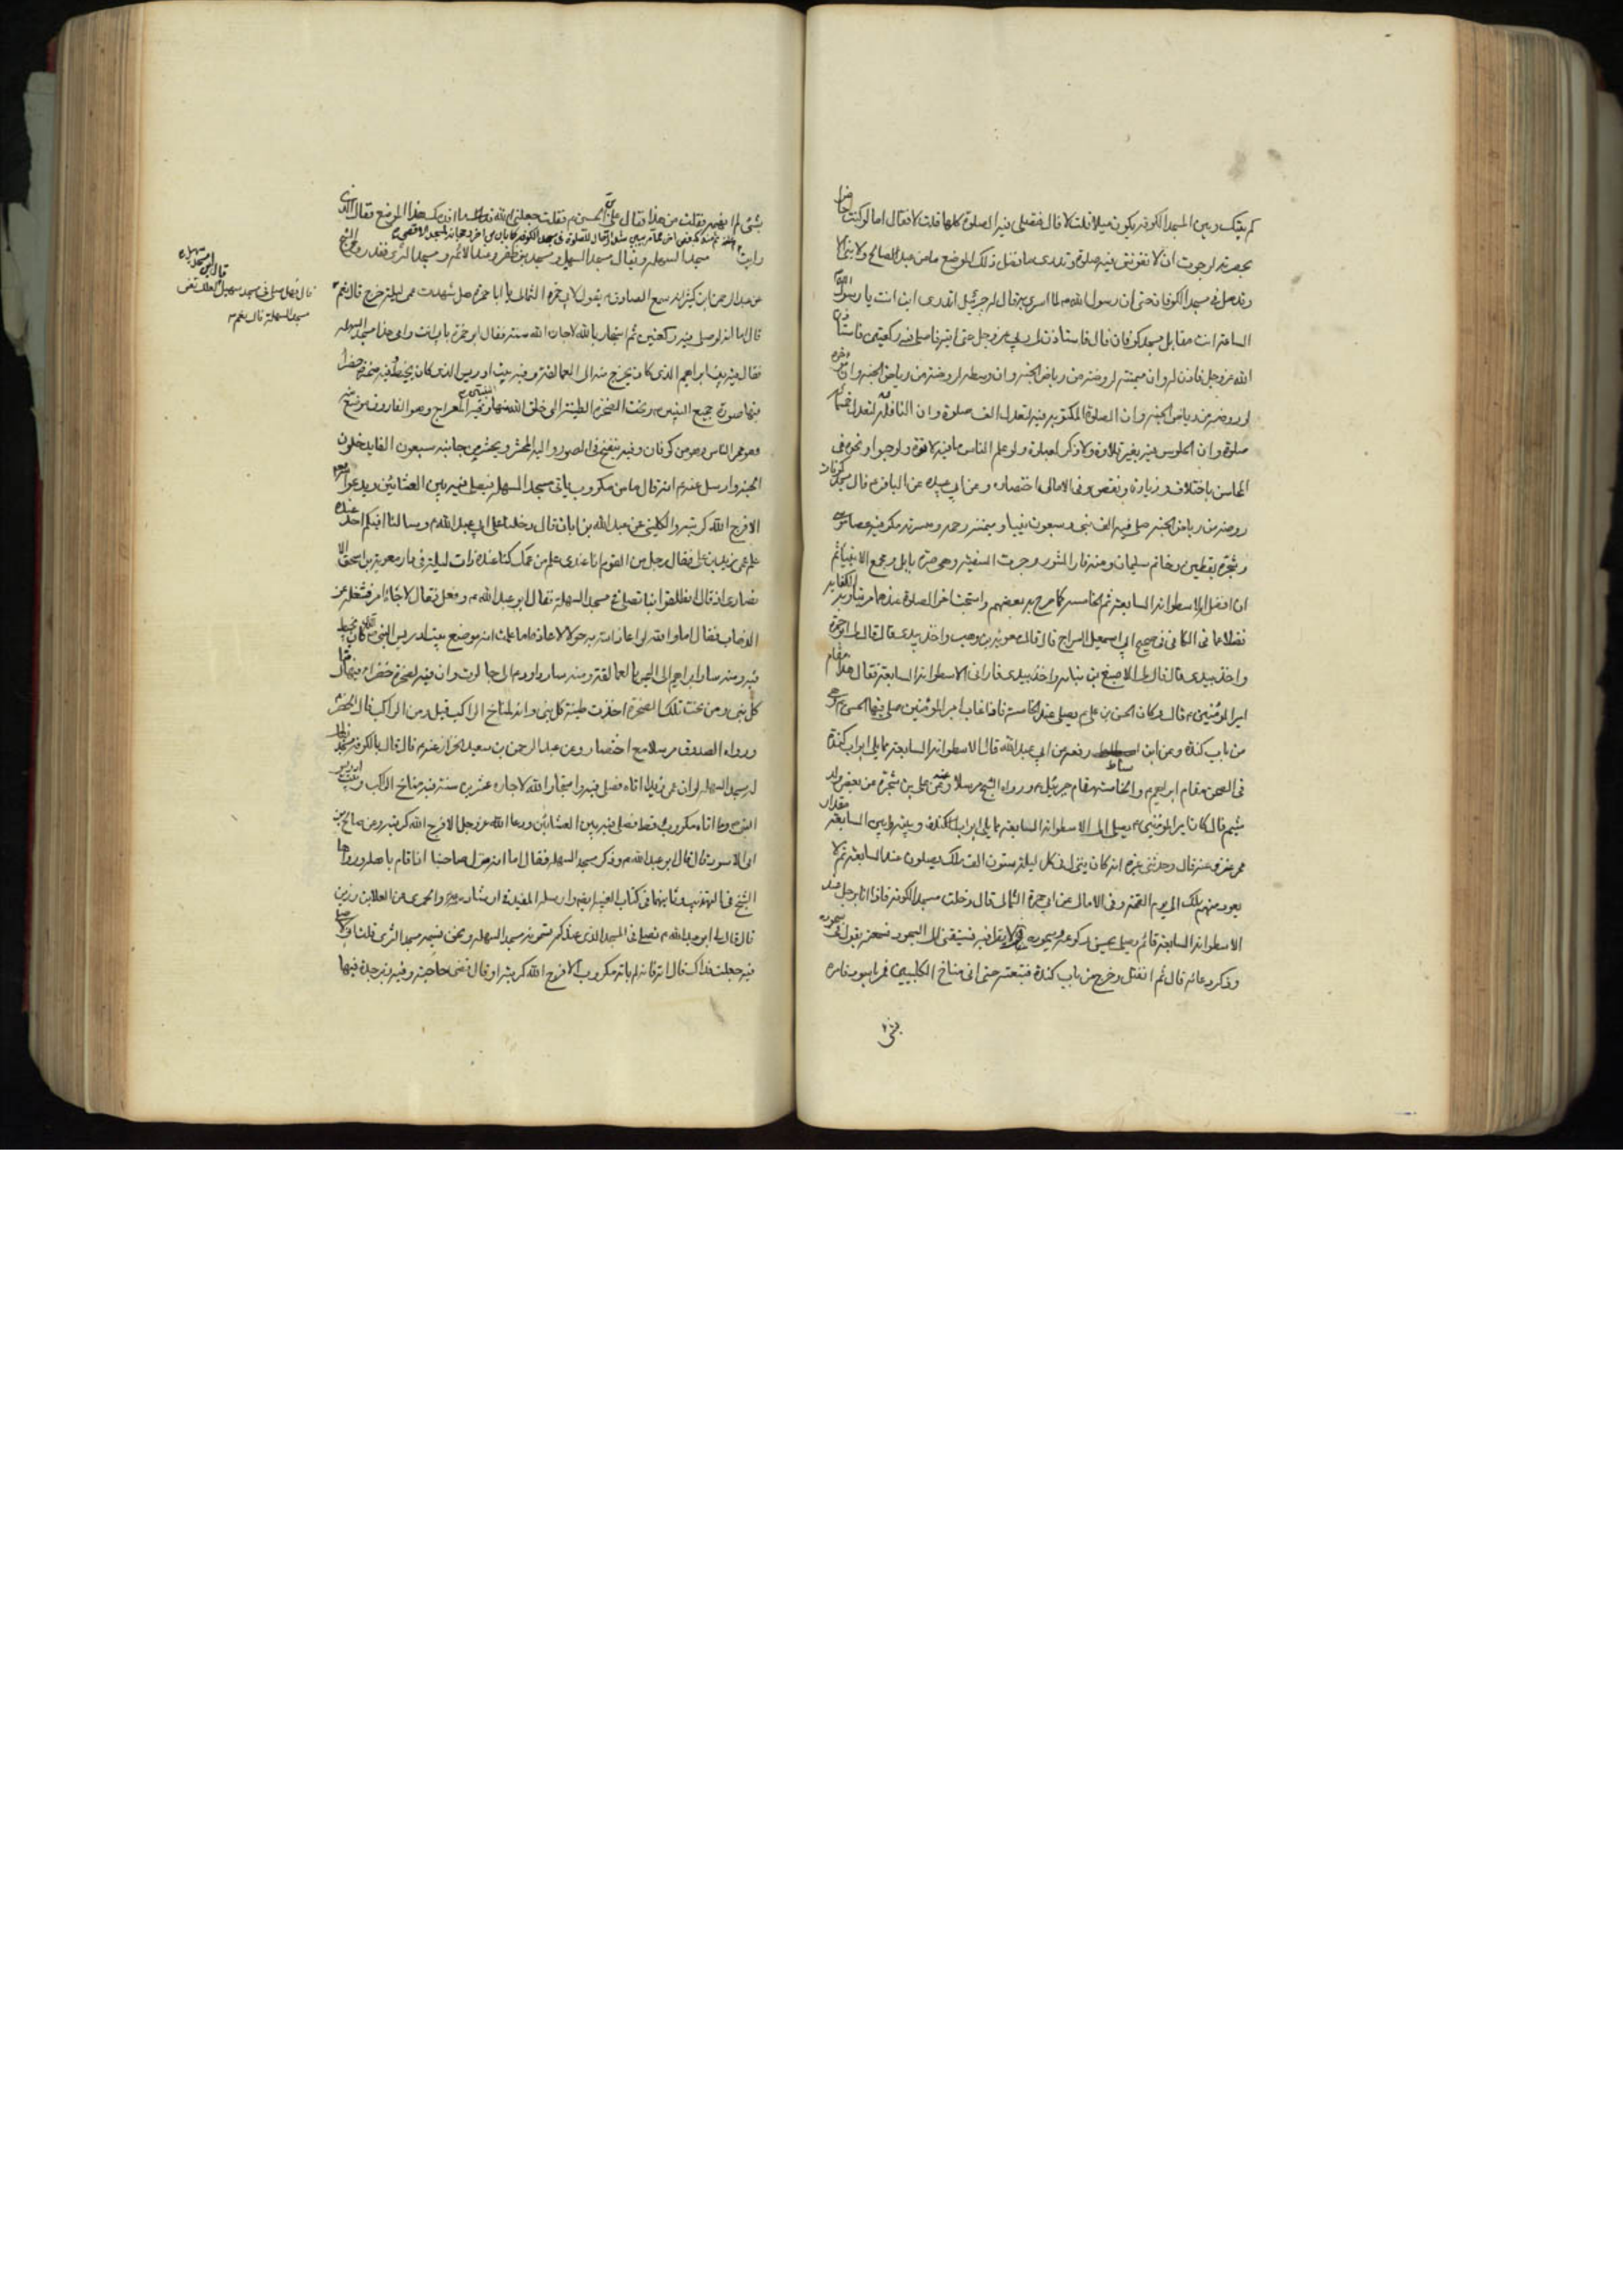 كم بينك وبين المسجد الكوفة يكون ميلا قلت لا قال فتصلي فيه الصلوة كلها قلت لا فقال اما لو كنت حاضرا
بحضرته لرجوت ان لا تفوتني فيه صلوة وتدري ما فضل ذلك الموضع ما من عبد صالح ولا نبي الا
وقد صلى في مسجد الكوفان حتى ان رسول الله ص لما اسرى به قال له جبرئيل اتدري اين انت يا رسول الله
الساعة انت مقابل مسجد كوفان قال فاستاذن لي ربي عز وجل حتى اتيه فاصلي فيه ركعتين فاستاذن
الله عز وجل فاذن له وان ميمنته لروضة من رياض الجنة وان وسطه لروضة من رياض الجنة وان مؤخره
لروضة من رياض الجنة وان الصلوة المكتوبة فيه لتعدل الف صلوة وان النافلة فيه لتعدل خمسمائة
صلوة وان الجلوس فيه بغير تلاوة ولا ذكر لعبادة ولو علم الناس ما فيه لاتوه ولو حبوا ونحوه في
المحاسن باختلاف وزيادة ونقص وفي الامالي اختصار وعن ابي عبيدة عن الباقر م قال مسجد كوفان
روضة من رياض الجنة صلى فيه الف نبي وسبعون نبيا وميمنته رحمة وميسرته مكر فيه عصا موسى
وشجرة يقطين وخاتم سليمان ومنه فار التنور وجرت السفينة وهي صرة بابل ومجمع الانبياء ثم
ان افضل الاسطوانة السابعة ثم الخامسة كما صرح به بعضهم واستحباب الصلوة عندهما
فضلا عما في الكافي في صحيح ابي اسمعيل السراج قال قال معوية بن وهب واخذ بيدي قال قال لي ابو حمزة
واخذ بيدي قال قال لي الاصبغ بن نباتة واخذ بيدي فاراني الاسطوانة السابعة فقال هذا مقام
امير المؤمنين م قال وكان الحسن بن علي م يصلي عند الخامسة فاذا غاب امير المؤمنين صلى فيها الحسن م وهي
من باب كندة وعن ابن اسباط رفعه عن ابي عبد الله قال الاسطوانة السابعة مما يلي ابواب كندة
في الصحن مقام ابراهيم م والخامسة مقام جبرئيل م ورواه الشيخ مرسلا وعنه عن علي بن شجرة عن بعض ولد
ميثم قال كان امير المؤمنين م يصلي الى الاسطوانة السابعة مما يلي ابواب كندة وبينه وبين السابعة مقدار
ممر عنز وعنه قال وحدثني غيره انه كان ينزل في كل ليلة ستون الف ملك يصلون عند السابعة ثم لا
يعود منهم ملك الى يوم القيمة وفي الامالي عن ابي حمزة الثمالي قال دخلت مسجد الكوفة فاذا انا برجل عند
الاسطوانة السابعة قائم يصلي يحسن ركوعه وسجوده فسبقني الى السجود فسمعته يقول في سجوده
وذكر دعائه قال ثم انفتل وخرج من باب كندة فتبعته حتى اتى مناخ الكلبيين فمر باسود فامره
بشئ
بشئ لم افهمه فقلت من هذا فقال علي بن الحسين م فقلت جعلني الله فداك ما اقدمك هذا الموضع فقال الذي
رايت
مسجد السهلة ويقال مسجد السهيل ومسجد بني ظفر ومسجد الثرى فقد روى الشيخ
عن عبد الرحمن بن كثير انه سمع الصادق م يقول لابي حمزة الثمالي يا ابا حمزة هل شهدت عمي ليلة خرج قال نعم
قال اما انه لو صلى فيه ركعتين ثم استجار بالله لاجاره الله سنة فقال ابو حمزة بابي انت وامي هذا مسجد السهلة
فقال فيه بيت ابراهيم الذي كان يخرج منه الى العمالقة وفيه بيت ادريس الذي كان يخيط فيه وفيه صخرة خضراء
فيها صورة جميع النبيين م وتحت الصخرة الطينة التي خلق الله منها النبيين وفيه المعراج وهو الفاروق موضع منه
وهو ممر الناس وهو من كوفان وفيه ينفخ في الصور واليه المحشر ويحشر من جانبه سبعون الفا يدخلون
الجنة وارسل عنه م انه قال ما من مكروب ياتي مسجد السهلة فيصلي فيه بين العشائين ويدعو الله
الا فرج الله كربته والكليني عن عبد الله بن ابان قال دخلنا على ابي عبد الله م وسالنا افيكم احد عنده
علم عمي زيد بن علي فقال رجل من القوم انا عندي علم من عمك كنا عنده ذات ليلة في دار معوية بن اسحق الا
نصاري اذ قال انطلقوا بنا نصلي في مسجد السهلة فقال ابو عبد الله م وفعل فقال لا جاءه امر فشغله عن
الذهاب فقال اما والله لو اعاذ الله به حولا لاعاذه اما علمت انه موضع بيت ادريس النبي م الذي كان يخيط
فيه ومنه سار ابراهيم الى اليمن بالعمالقة ومنه سار داود م الى جالوت وان فيه لصخرة خضراء فيها مثال
كل نبي ومن تحت تلك الصخرة اخذت طينة كل نبي وانه لمناخ الراكب قيل ومن الراكب قال الخضر م
ورواه الصدوق مرسلا مع اختصار وعن عبد الرحمن بن سعيد الخزاز عنه م قال قال بالكوفة مسجد يقال
له مسجد السهلة لو ان عمي زيدا اتاه فصلى فيه واستجار الله لاجاره عشرين سنة فيه مناخ الراكب وبيت ادريس
النبي م وما اتاه مكروب قط فصلى فيه بين العشائين ودعا الله عز وجل الا فرج الله كربته وعن صالح بن
ابي الاسود قال قال ابو عبد الله م وذكر مسجد السهلة فقال اما انه منزل صاحبنا اذا قام باهله ورواهما
الشيخ في التهذيب وثانيهما في كتاب الغيبة ايضا وارسله المفيد في ارشاده والحميري عن العلا بن رزين
قال قال لي ابو عبد الله م تصلي في المسجد الذي عندكم تسمونه مسجد السهلة ونحن نسميه مسجد الثرى قلت اني لاصلي
فيه جعلت فداك قال ائته فانه لم ياته مكروب الا فرج الله كربته او قال قضى حاجته وفيه زبرجدة فيها
قال فهل صلى في مسجد سهيل
مسجد السهلة قال نعم